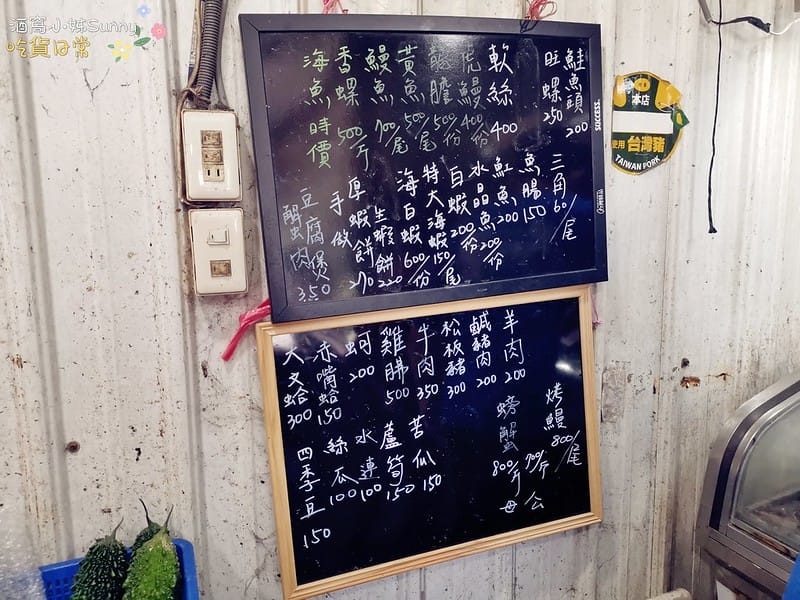 酒窩小姊Sunny
吃貨日常
鮭魚頭 200
旺螺 250
軟絲 400
虎鰻 400/份
龍膽 500/份
黃魚 500/尾
鰻魚 700/尾
香螺 500/斤
海魚 時價
三角 60/尾
魚腸 150
魟魚 200
水晶魚 200/份
白蝦 200/份
特大海蝦 150/尾
海白蝦 600/份
生蝦餅 220
厚蝦餅 270
手做
豆腐煲
蟹肉 350
SUCCESS
本店
使用 台灣豬
TAIWAN PORK
羊肉 200
鹹豬肉 200
松板豬 300
牛肉 350
雞腸 500
蚵 200
赤嘴蛤 150
大文蛤 300
烤鰻 800/尾
螃蟹 700/斤 公
800/斤 母
苦瓜 150
蘆筍 150
水蓮 100
絲瓜 100
四季豆 150